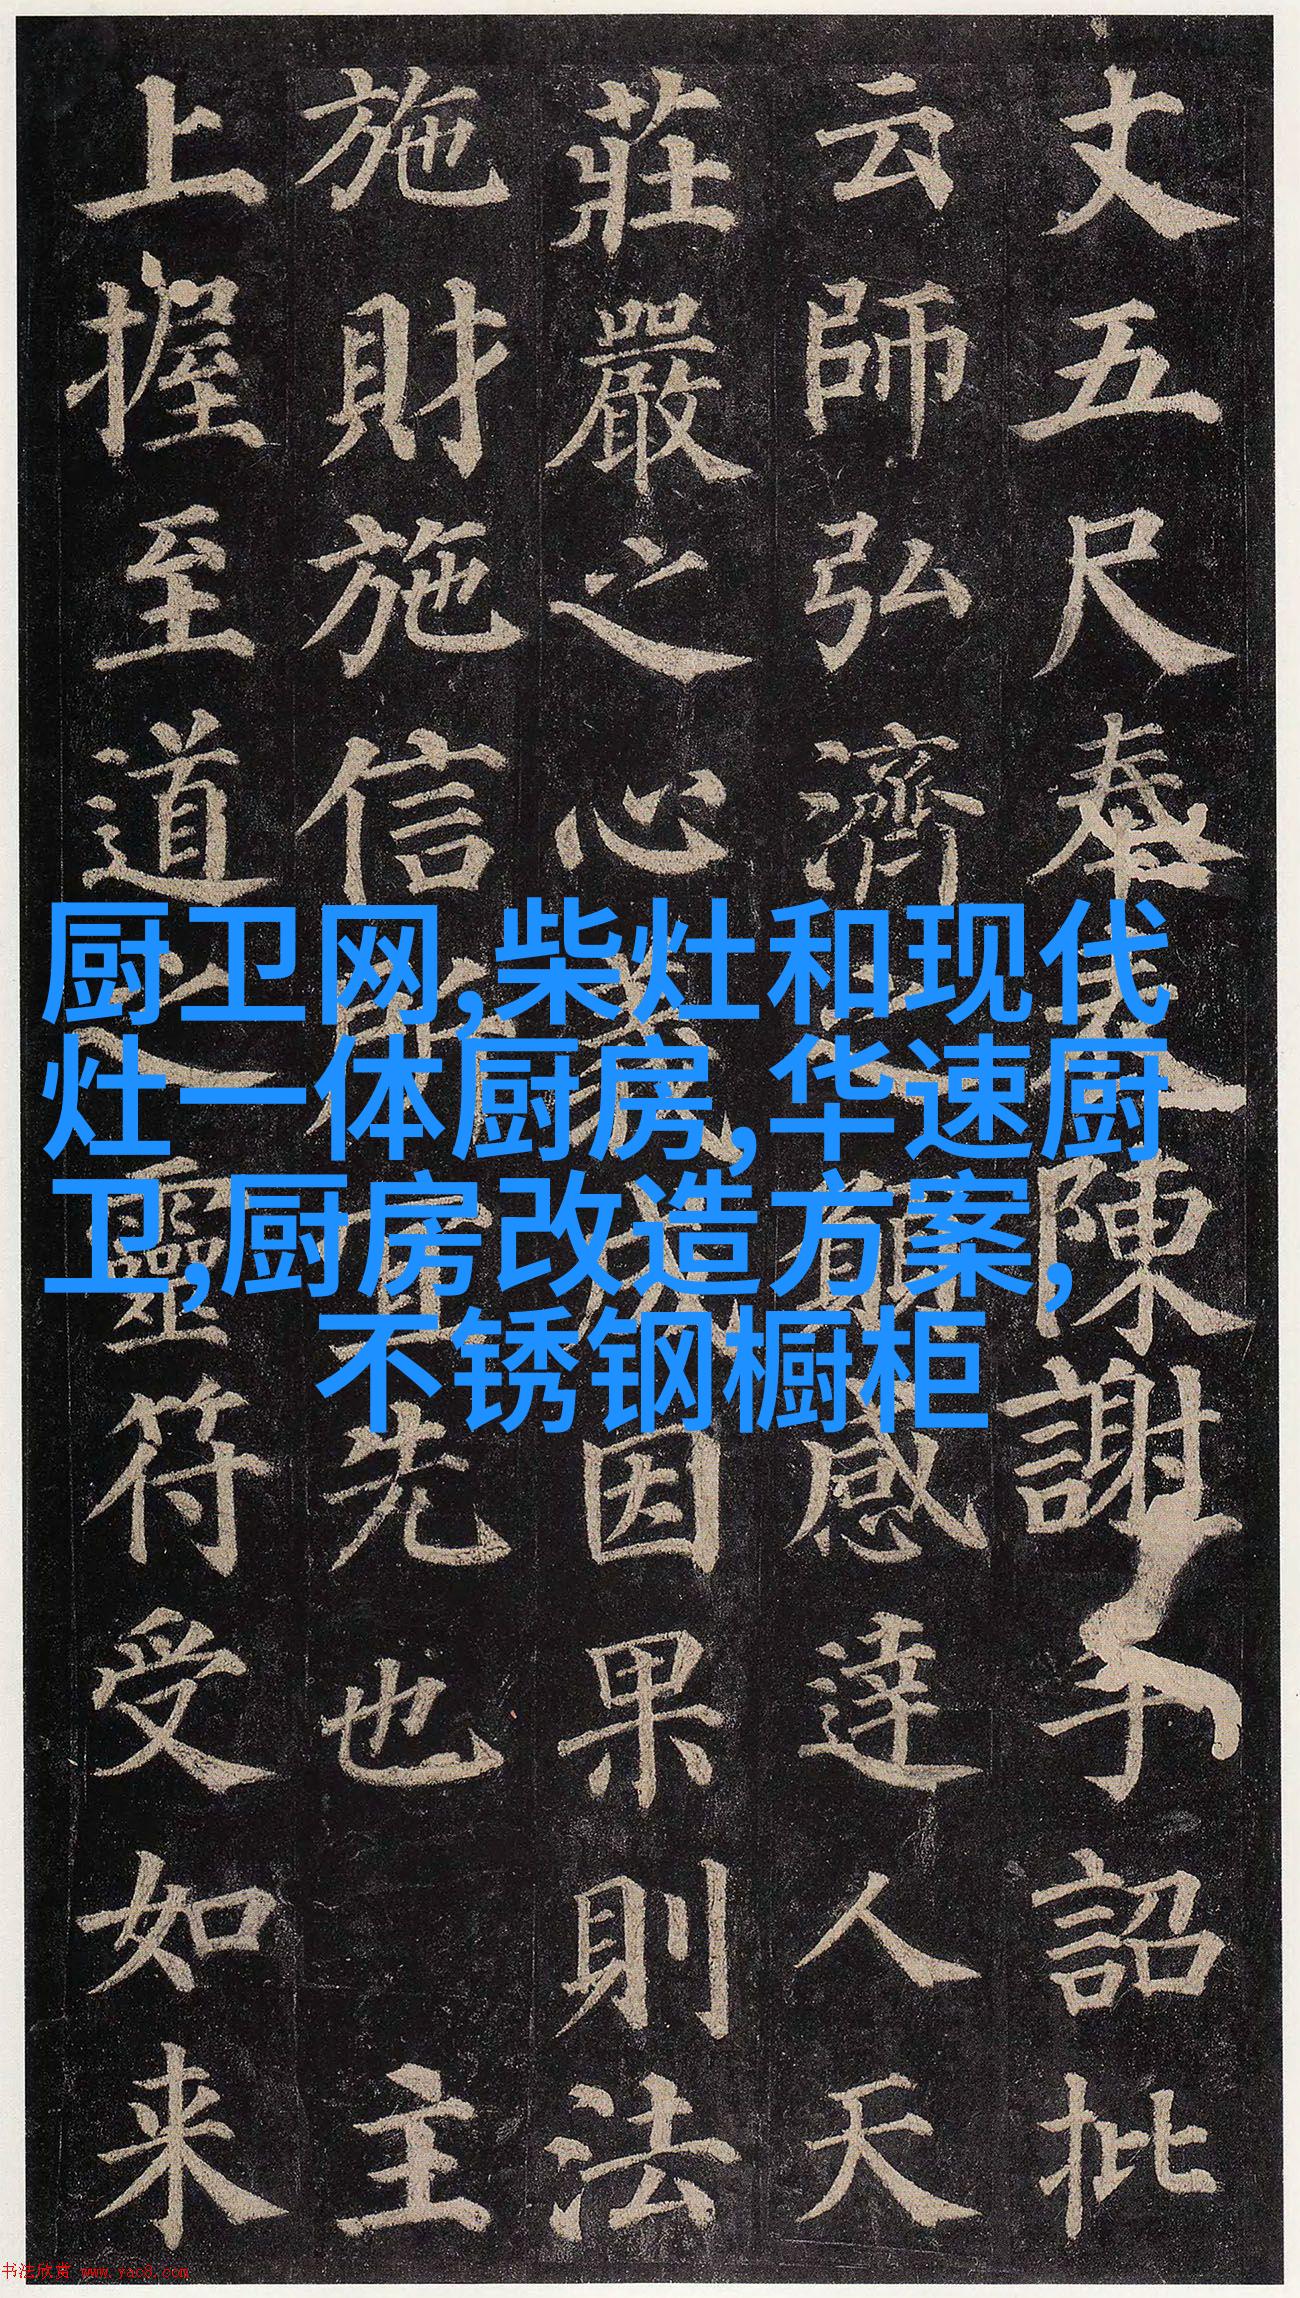 丈五尺奉表陳謝手詔批
云師弘濟之願感達人天
莊嚴之心義成因果則法
施財施信財宜先也主
上握至道之靈符受如来
厨卫网,柴灶和现代
灶一体厨房,华速厨
卫,厨房改造方案,
不锈钢橱柜
书法欣赏 www.yac8.com